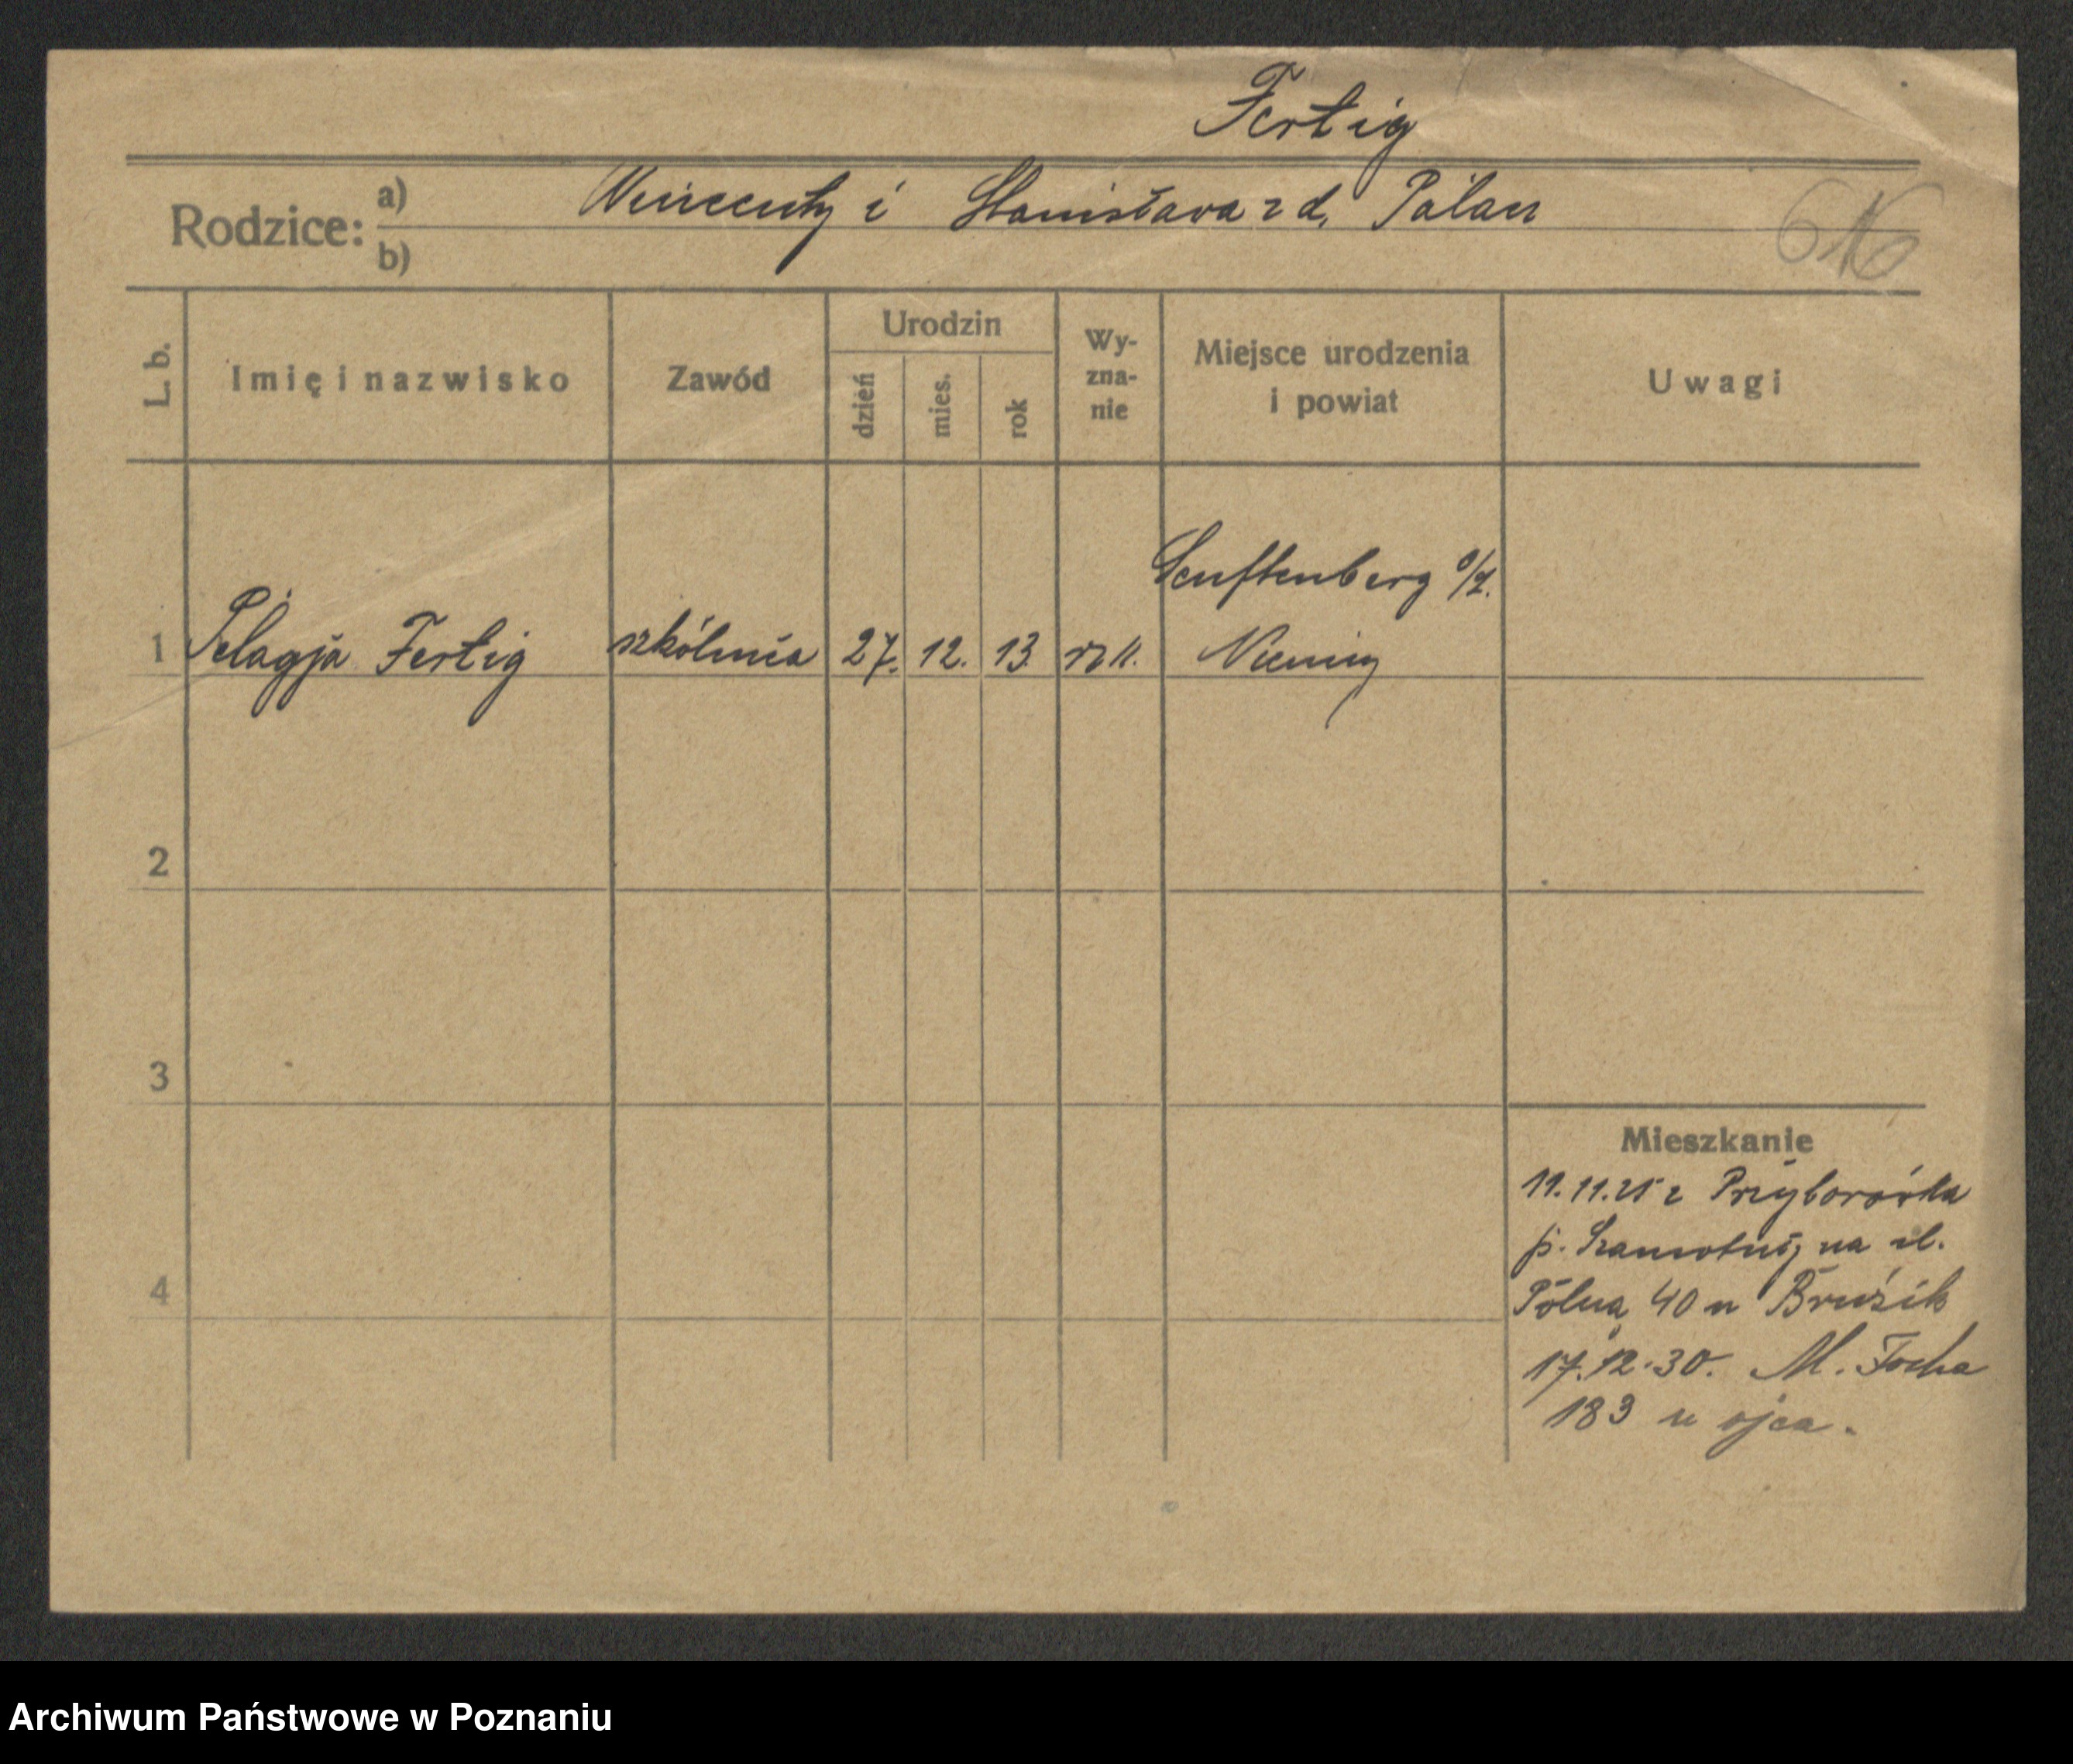 Fertig
Rodzice: a) Wincenty i Stanisława z d. Palan
b)
616
L. b. Imię i nazwisko Zawód Urodzin dzień mies. rok Wy-zna-nie Miejsce urodzenia i powiat Uwagi
Senftenberg N/L.
1 Pelagja Fertig szkólnia 27. 12. 13. rzk. Niemcy
2
3
Mieszkanie
11.11.25 z Przyborówka
p. Szamotuły na ul.
4
Pólną 40 u Bruzik
17.12.30. M. Focha
183 u ojca.
Archiwum Państwowe w Poznaniu